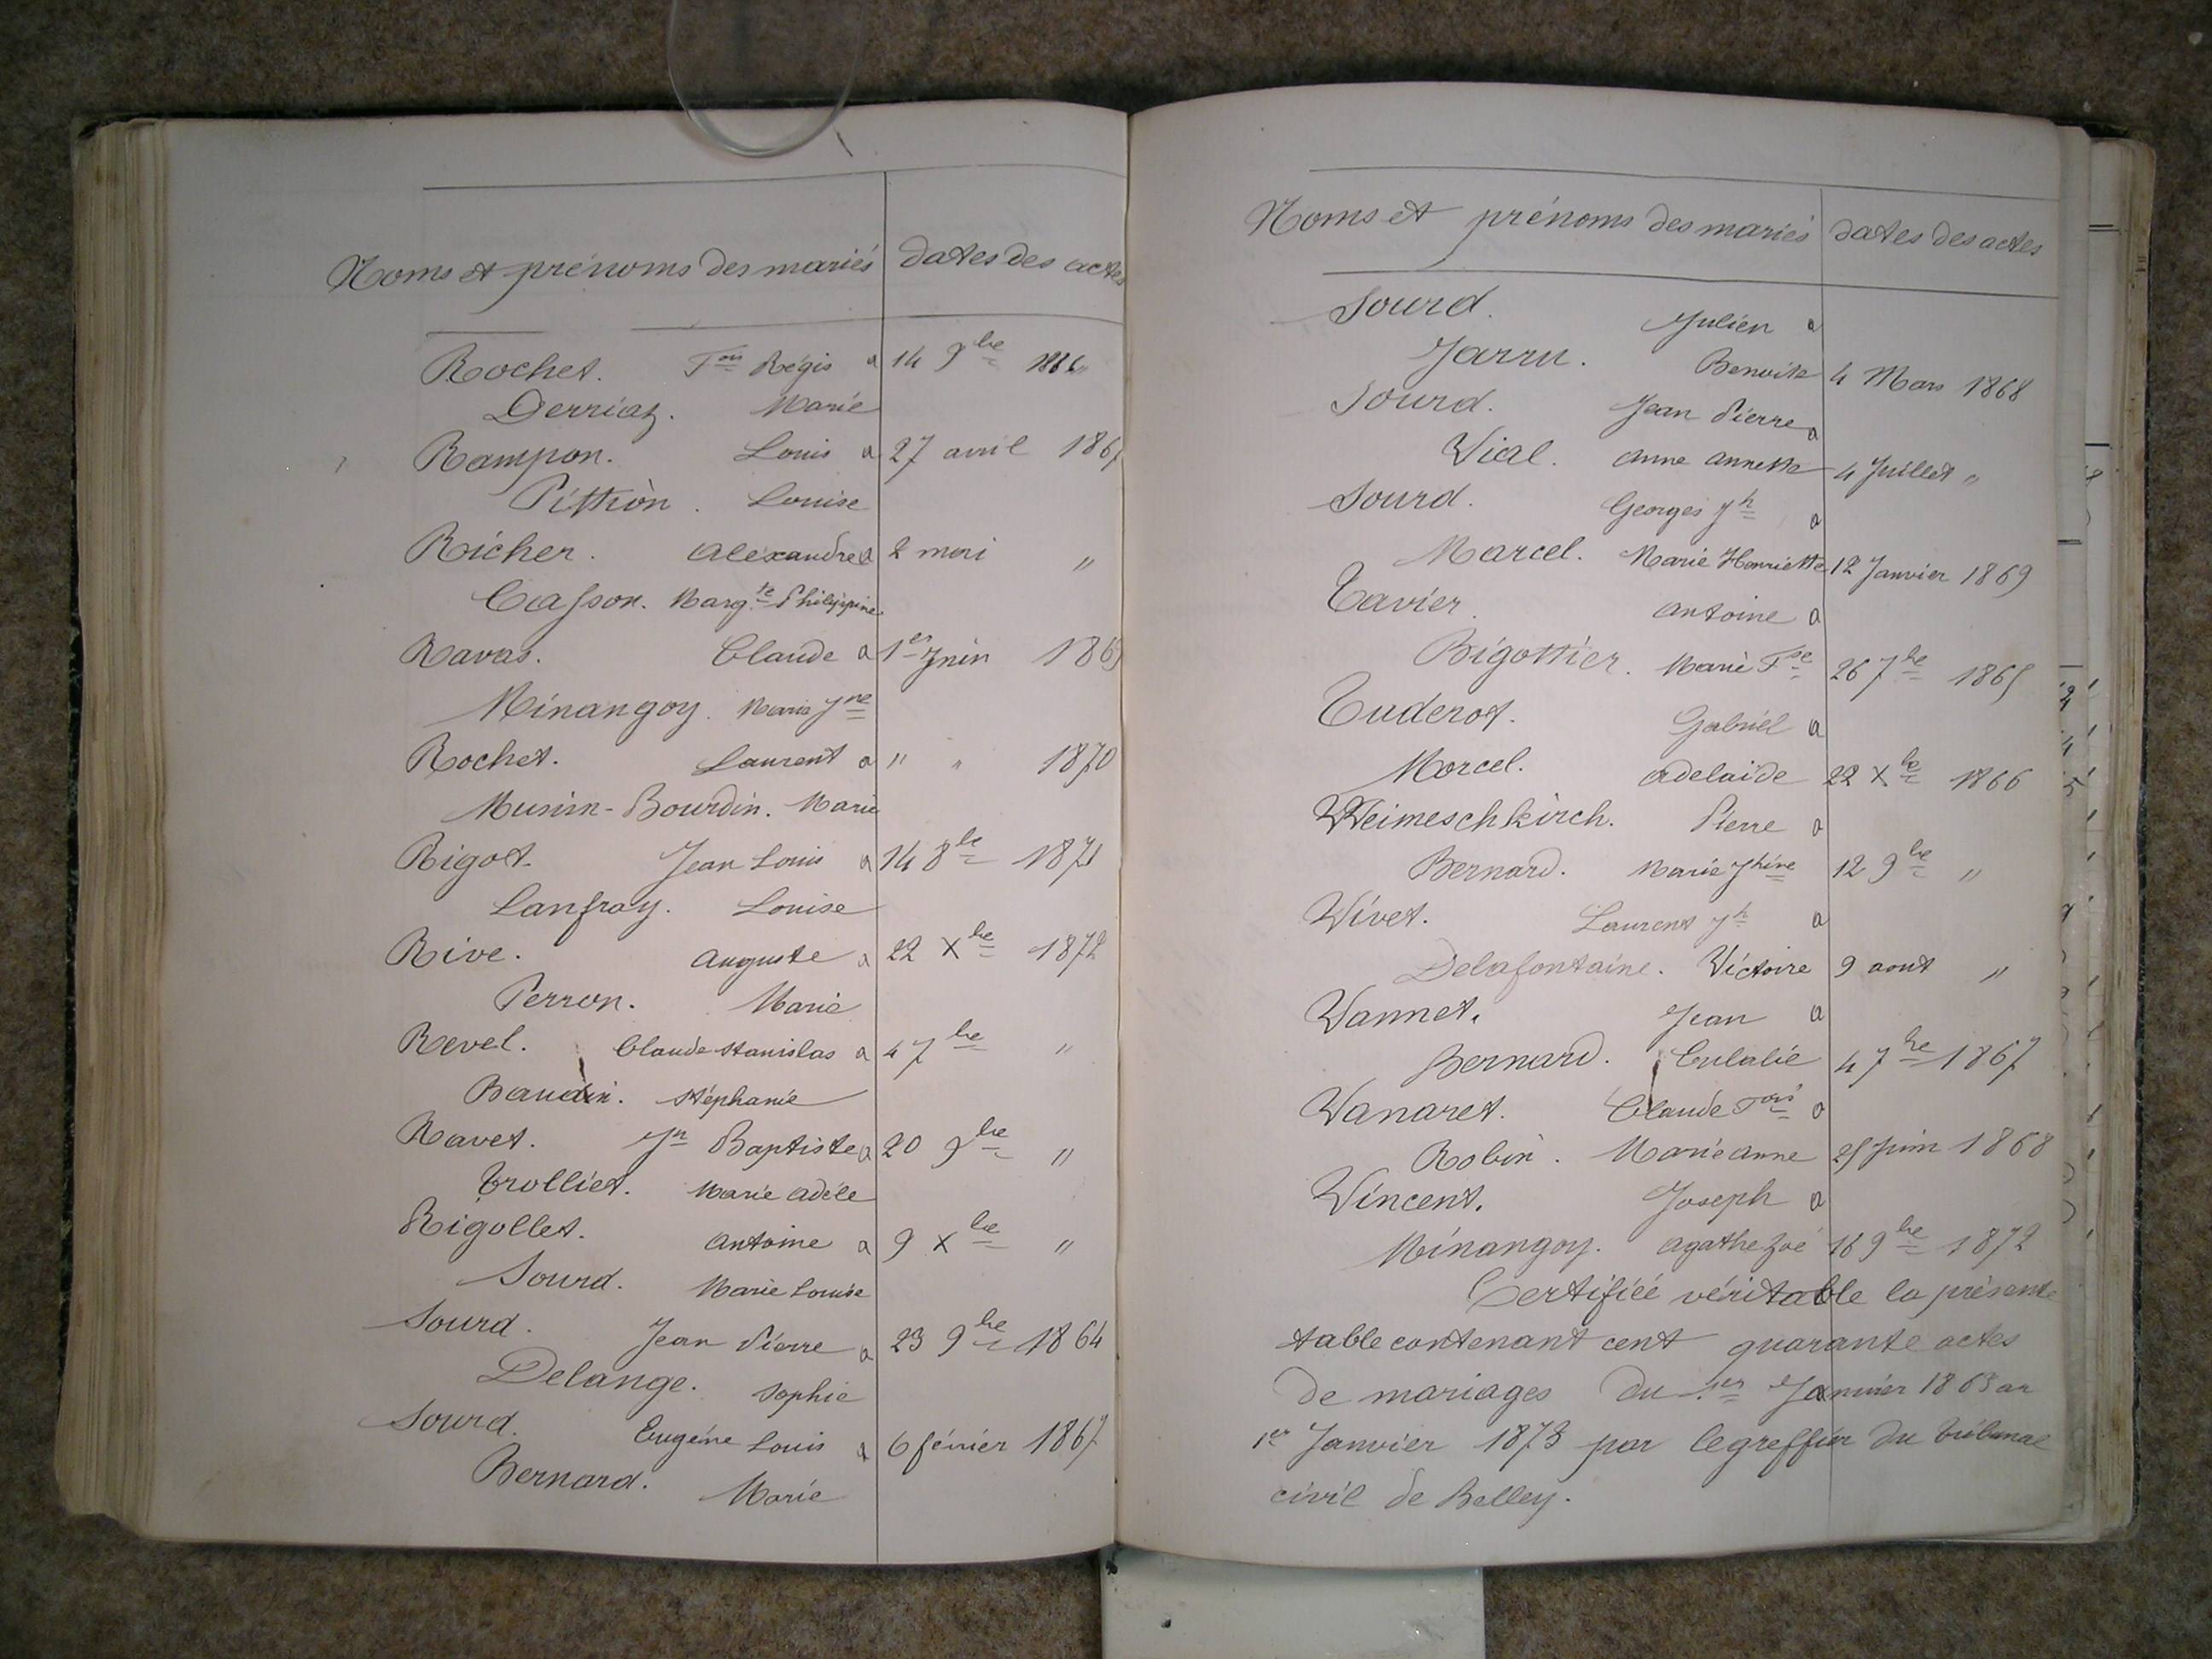 Noms et prénoms des mariés dates des actes
Rochet. Fois Régis a 14 9bre 1866
Derriaz. Marie
Rampon. Louis a 27 avril 1867
Pittion. Louise
Richer. Alexandre a 2 mai "
Casson. Margte Philippine
Ravas. Claude a 1er Juin
Minangoy. Marie Jne
Rochet. Laurent a " " 1870
Musim-Bourdin. Marie
Rigot. Jean Louis a 14 8bre 1871
Lanfray. Louise
Rive. Auguste a 22 Xbre 1872
Perron. Marie
Revel. Claude Stanislas a 4 7bre "
Baudin. Stéphanie
Ravet. Jn Baptiste a 20 9bre "
Trolliet. Marie Adèle
Rigollet. Antoine a 9 Xbre "
Sourd. Marie Louise
Sourd. Jean Pierre a 23 9bre 1864
Delange. Sophie
Sourd. Eugène Louis a 6 février 1867
Bernard. Marie
Noms et prénoms des mariés dates des actes
Sourd. Julien a
Jarru. Benoite 4 Mars 1868
Sourd. Jean Pierre a
Vial. Anne Annette 4 Juillet "
Sourd. Georges Jh a
Marcel. Marie Henriette 12 Janvier 1869
Tavier. Antoine a
Bigottier. Marie Fse 26 7bre 1865
Tuderot. Gabriel a
Morcel. Adelaïde 22 Xbre 1866
Weimeschkirch. Pierre a
Bernard. Marie Jhine 12 9bre "
Vivet. Laurent Jh a
Delafontaine. Victoire 9 aout "
Vannet. Jean a
Bernard. Eulalie 4 7bre 1867
Vanaret. Claude Fois a
Robin. Marie Anne 25 Juin 1868
Vincent. Joseph a
Minangoy. Agathe Zoé 16 9bre 1872
Certifiée véritable la présente
table contenant cent quarante actes
de mariages du 1er Janvier 1863 au
1er Janvier 1873 par le greffier du Tribunal
civil de Belley.